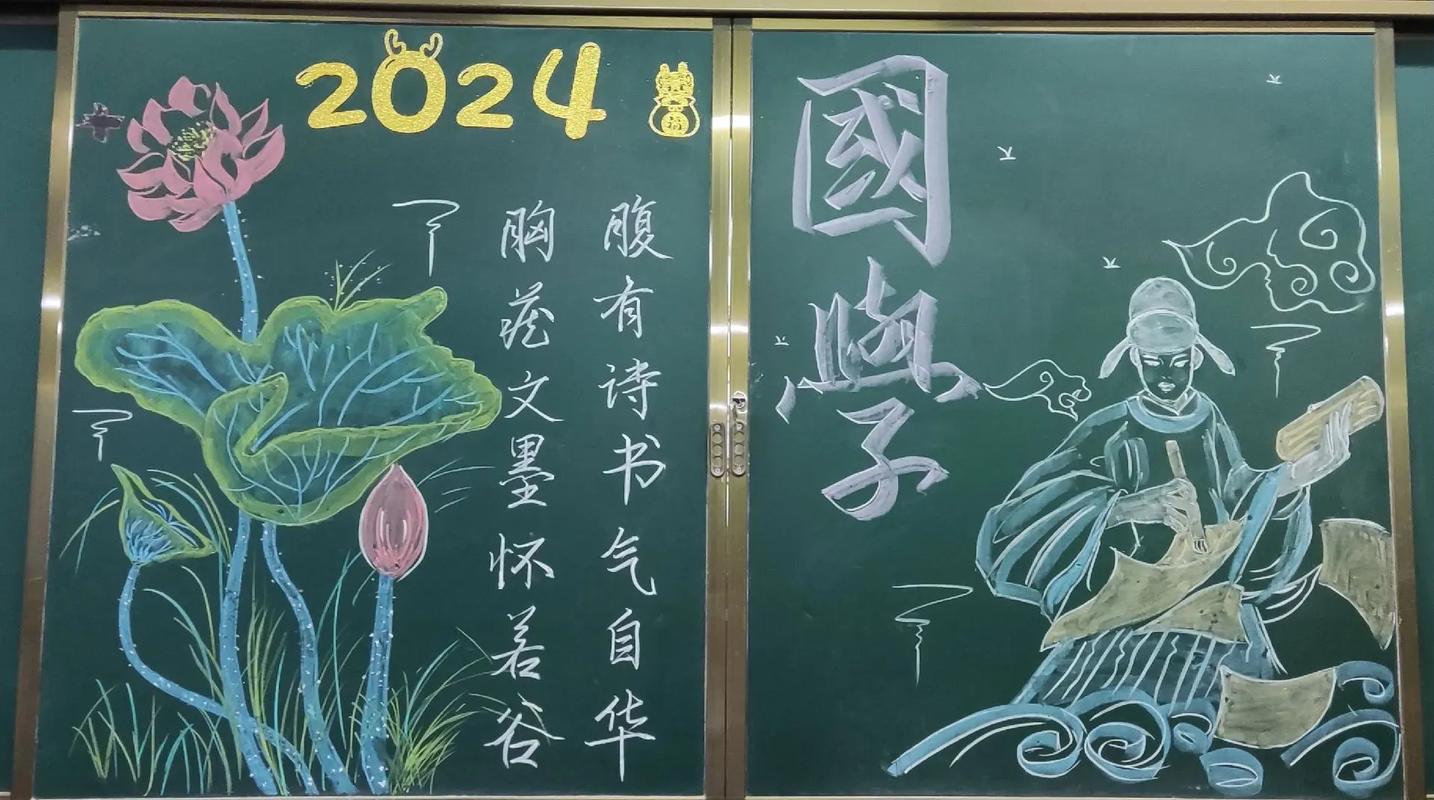 2024
國學
腹有诗书气自华
胸藏文墨怀若谷